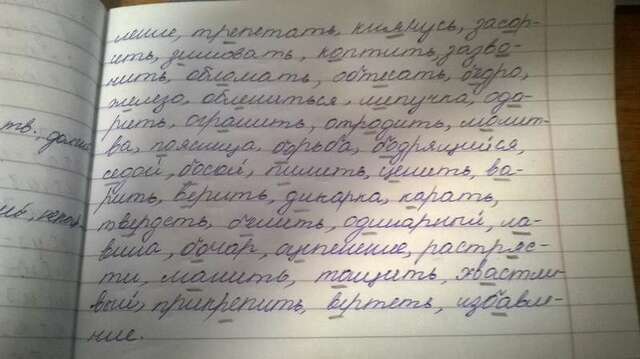 ление, трепетать, кипятусь, засор-
ить, зимовать, коптить, зазво-
нить, обломать, обтесать, бедро,
железо, облениться, липучка, ода-
рить, огранить, отродить, молит-
ва, поясница, борьба, бодрящийся,
седой, босой, пилить, ценить, ва-
рить, верить, дикарка, карать,
твердеть, оценить, одинарный, ла-
вина, бочар, оцепление, растряс-
ти, манить, тащить, хвастли-
вый, прикрепить, вертеть, избавле-
ние.
тв.,